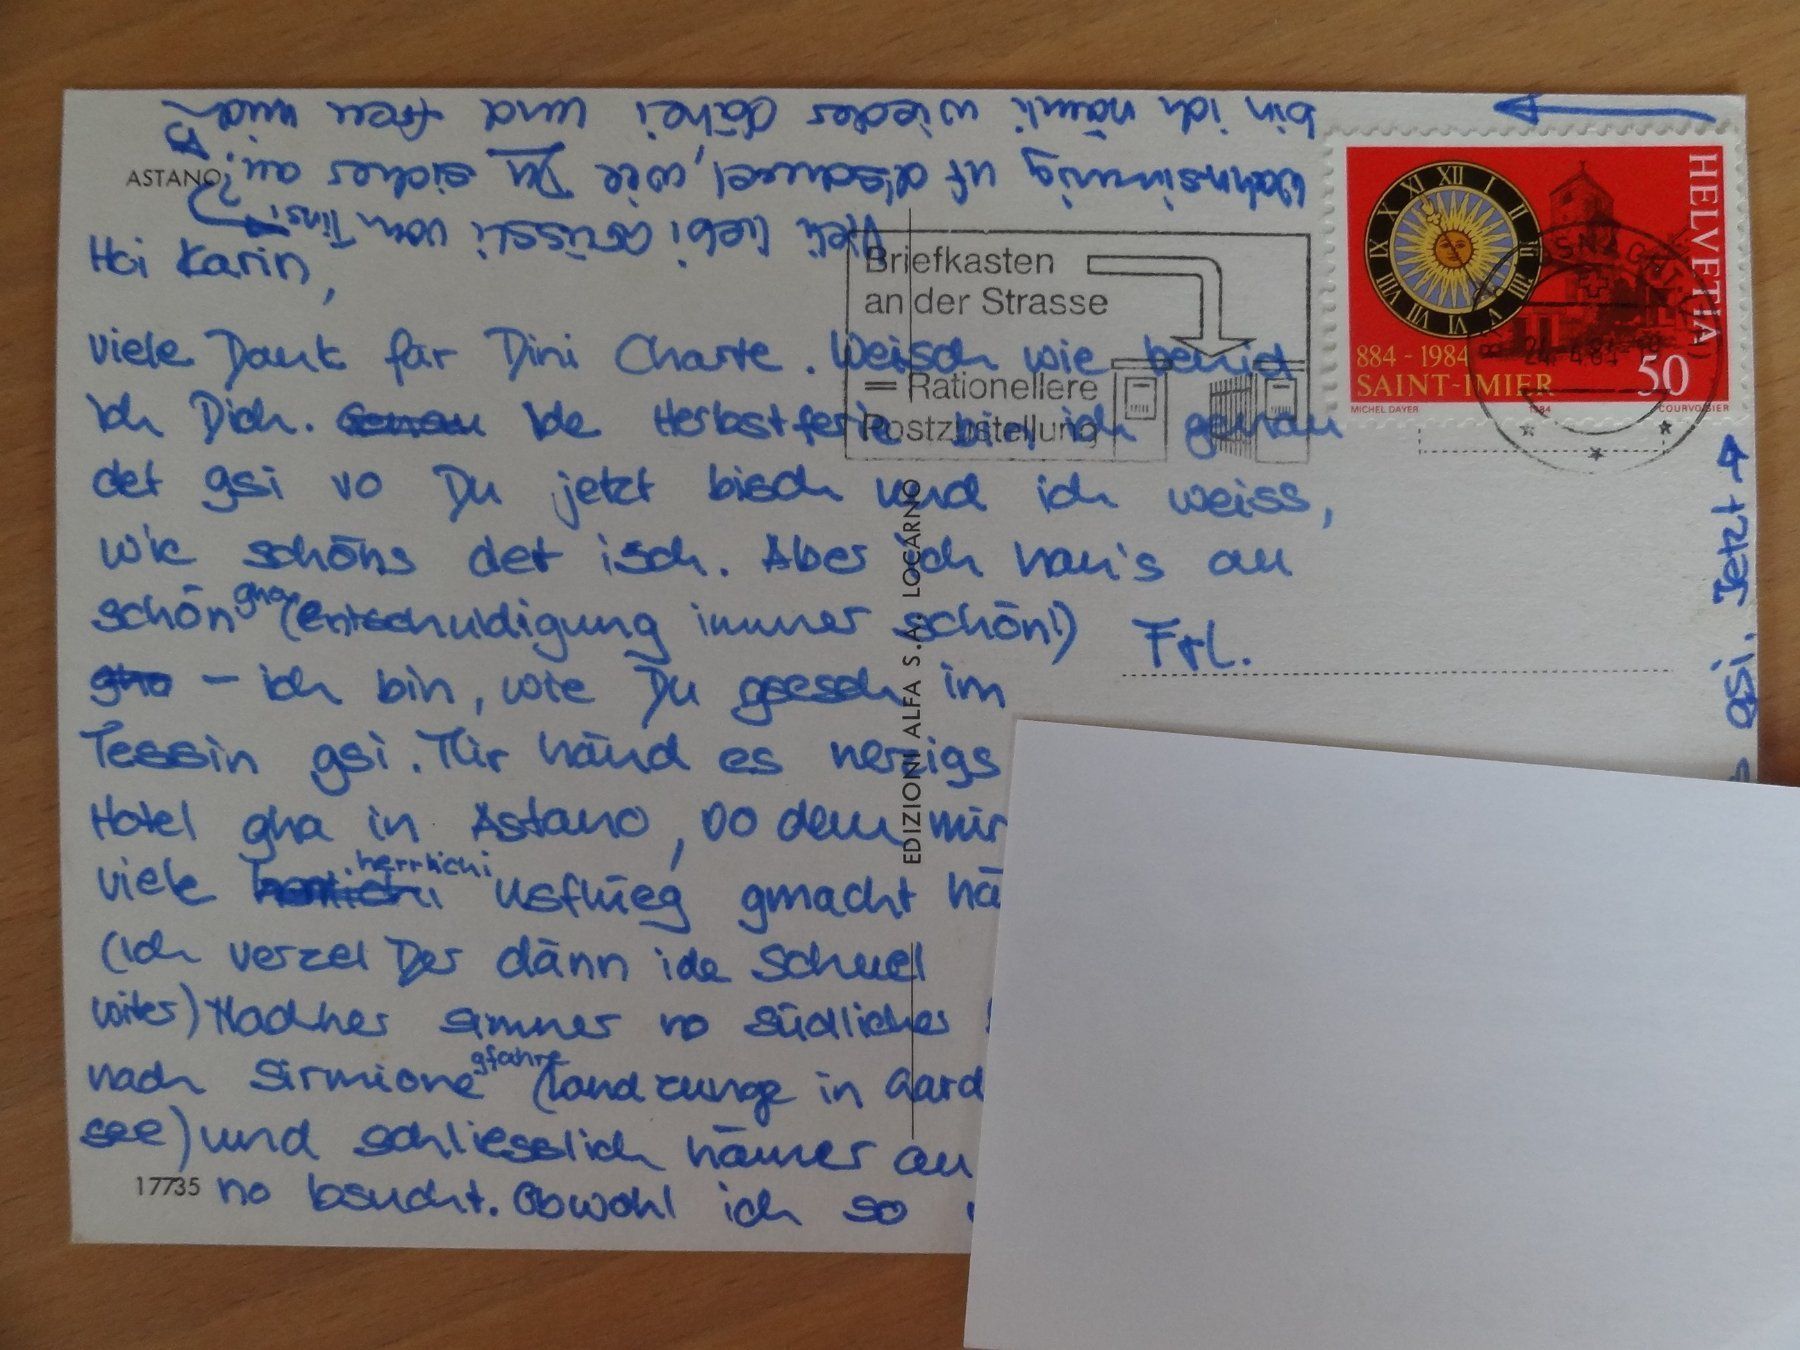 ASTANO
Hoi Karin,
viele Dank für Dini Charte. Weisch wie benid
ich Dich. Ide Herbstferie bin ich genau
det gsi vo Du jetzt bisch und ich weiss,
wie schöns det isch. Aber ich han's au
schön gha (entschuldigung immer schön!)
gha – ich bin, wie Du gsesch im
Tessin gsi. Mir händ es herzigs
Hotel gha in Astano, vo dem mir
viele herrlichi Usflüeg gmacht hä
(ich verzel Der dänn ide Schuel
witer) Nachher simmer no südlicher
nach Sirmione gfahre (Landzunge in Gard
see) und schliesslich hämer au
no bsucht. Obwohl ich so
17735
gsi. Jetzt
bin ich nämli wieder dihei und freu mich
wahnsinnig uf d'Schuel, wie Du sicher au?
Vieli liebi Grüessli vom Tinsi
EDIZIONI ALFA S.A. LOCARNO
Briefkasten
an der Strasse
= Rationellere
Postzustellung
HELVETIA
XII I II III IIII V VI VII VIII IX X XI
884 - 1984
SAINT-IMIER
50
MICHEL DAYER 1984 COURVOISIER
24.4.84
Frl.